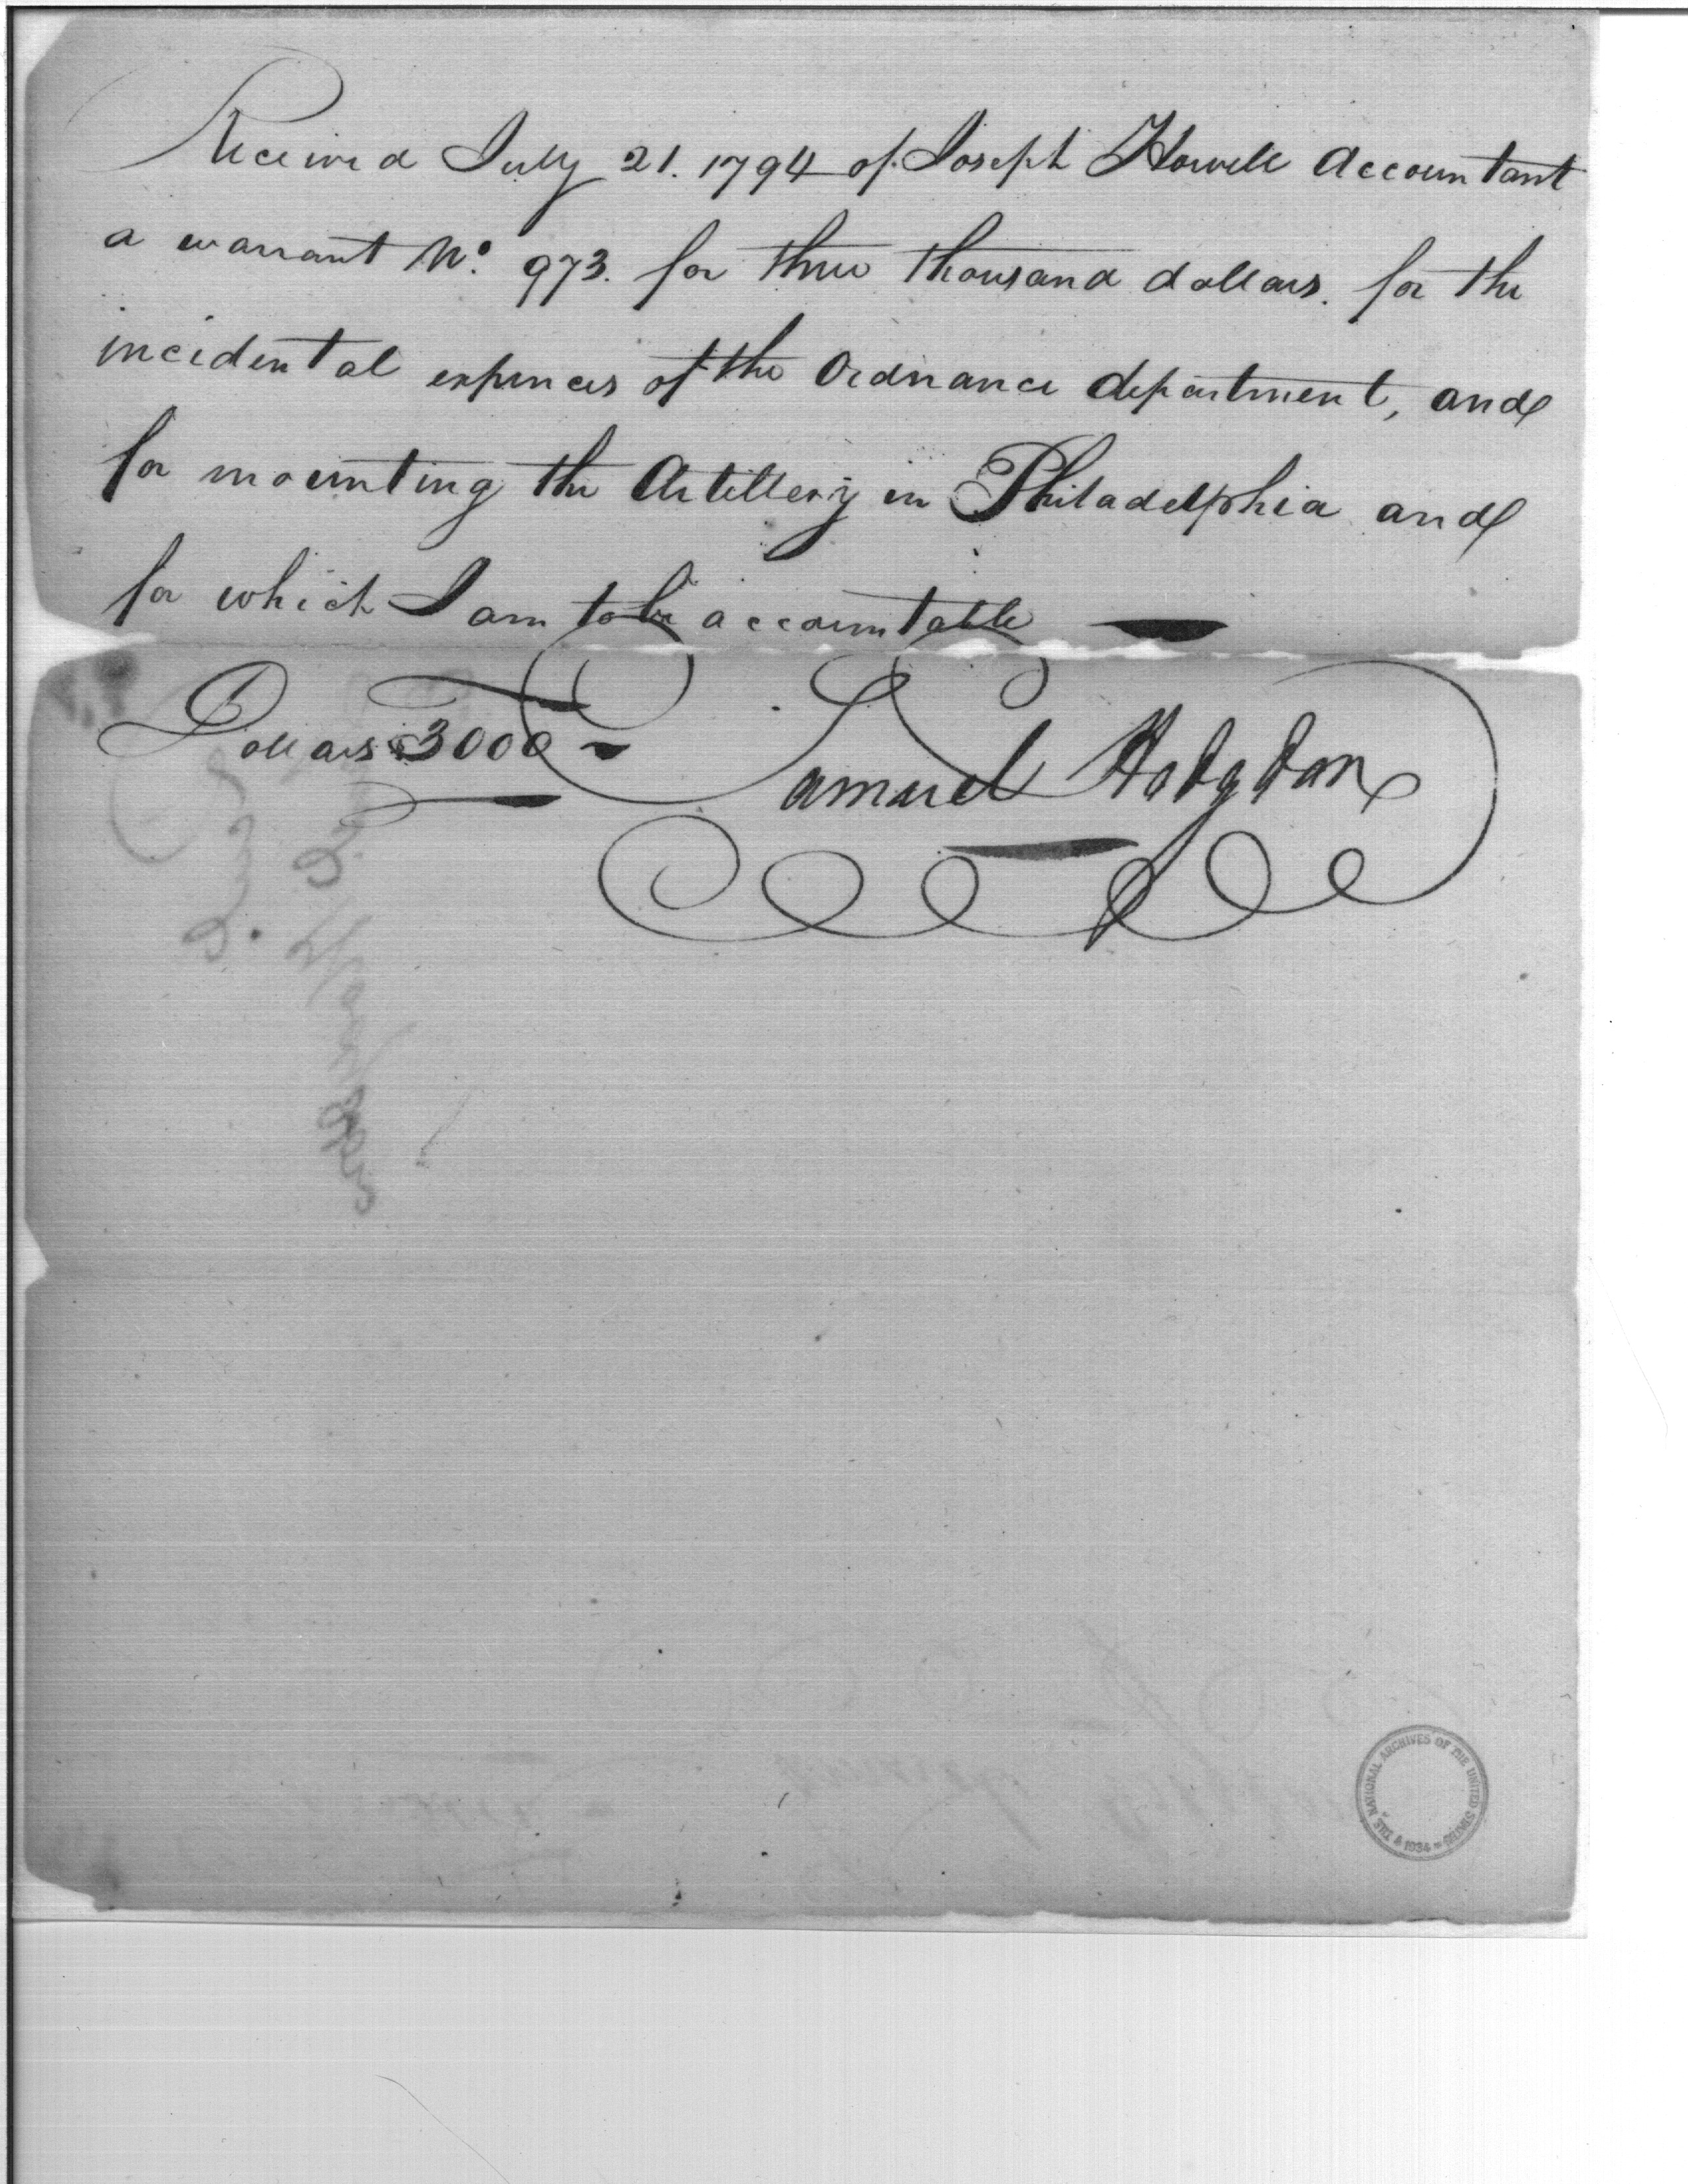 Received July 21. 1794 of Joseph Howell Accountant
a warrant No. 973. for three thousand dollars. for the
incidental expences of the Ordnance department, and
for mounting the Artillery in Philadelphia and
for which I am to be accountable
Dollars 3000
Samuel Hodgdon
THE NATIONAL ARCHIVES OF THE UNITED STATES
1934